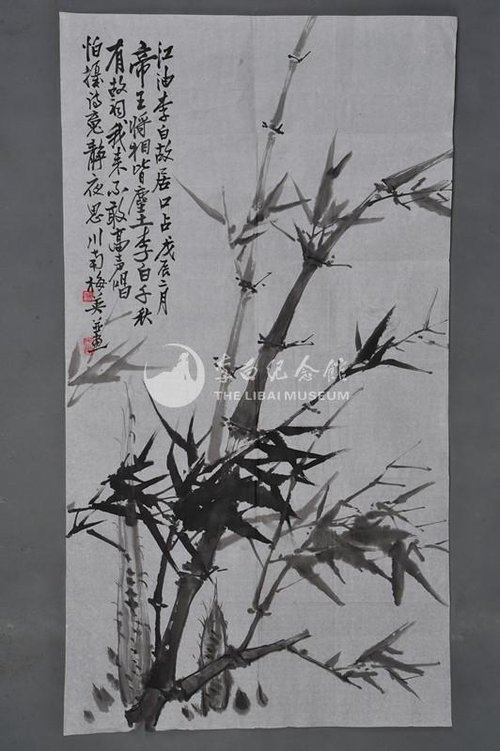 江油李白故居口占戊辰二月
帝王将相皆塵土李白千秋
有故祠我来不敢高声唱
怕擾诗魂静夜思川南梅英並畫
李白纪念馆
THE LIBAI MUSEUM